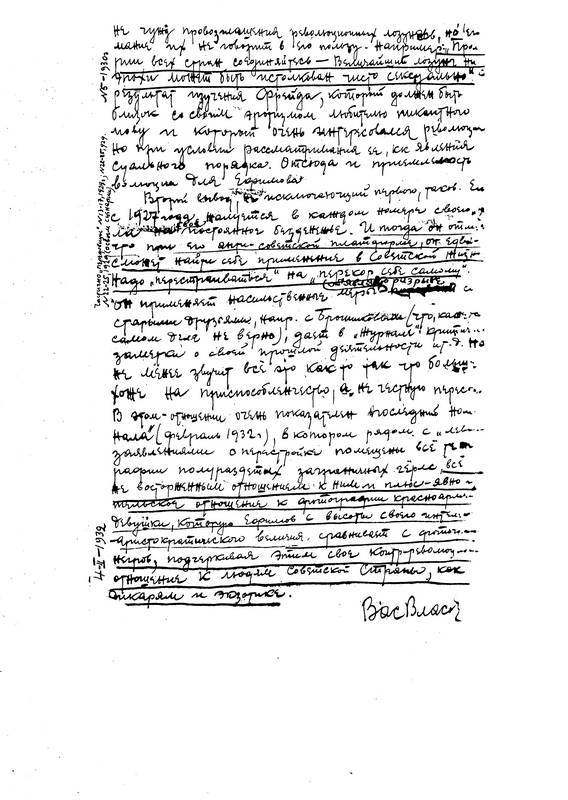 не чужд провозглашения революционных лозунгов, но его
мание их не говорит в его пользу. Например: "Про
рии всех стран соединяйтесь — Величайший лозунг на
эпохи может быть "истолкован чисто сексуально"
результат изучения Фрейда, который должен быть
близок со своим эротизмом любителю пикантного
мову и который очень интересовался революци
но при условии рассматривания ее, как явления
суального порядка. Отсюда и приемлемость
волюции для Ефимова
Второй вывод, не исключающий первого, таков. Ефи
с 1927 года жалуется в каждом номере своего
ла на постоянное безденежье. И тогда он отме
что при его анти-советской платформе, он едва
сможет найти себе применение в Советской жизн
Надо "перестраиваться" на "перекор себе самому".
он применяет насильственное меры разрыве с
старыми друзьями, напр. с Брошниковым (что, как
самом деле не верно), дает в "Журнал" критич
заметки о своей прошлой деятельности и т.д. Но
не менее звучит всё это как-то так что больш
хоже на приспособленчество, а не честную перест
В этом отношении очень показателен последний ном
нала" (февраль 1932 г), в котором рядом с "лев
заявлениями о перестройке помещены всё те
рафии полураздетых заграничных гёрлс, всё
не восторженным отношением к ним и плюс-явно
тельское отношение к фотографии красноарм
девушки, которую Ефимов с высоты своего интел
аристократического величия сравнивает с фотог
негров, подчеркивая этим свое контр-революц
отношение к людям Советской Страны, как
дикарям и экзотике.
Вас Власов
№5-1930г
4-II-1932